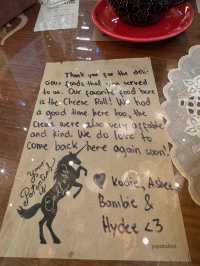 Thank you for the deli-
cious foods that you served
to us. Our favorite food here
is the Cheese Roll! We had
a good time here too, the
crews were also very affable
and kind. We do love to
come back here again soon!
♥ Kobie, Ashee
Bambie &
Hydee <3